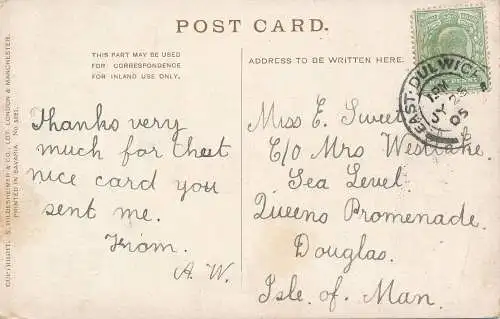 POST CARD.
THIS PART MAY BE USED
FOR CORRESPONDENCE
FOR INLAND USE ONLY.
ADDRESS TO BE WRITTEN HERE.
EAST-DULWICH
JY 2
05
COPYRIGHT, S. HILDESHEIMER & CO., LTD. LONDON & MANCHESTER.
PRINTED IN BAVARIA
Thanks very
much for that
nice card you
sent me.
From.
A.W.
Miss E. Sweet
C/O Mrs Westlake
Sea Level.
Queens Promenade.
Douglas.
Isle. of. Man.